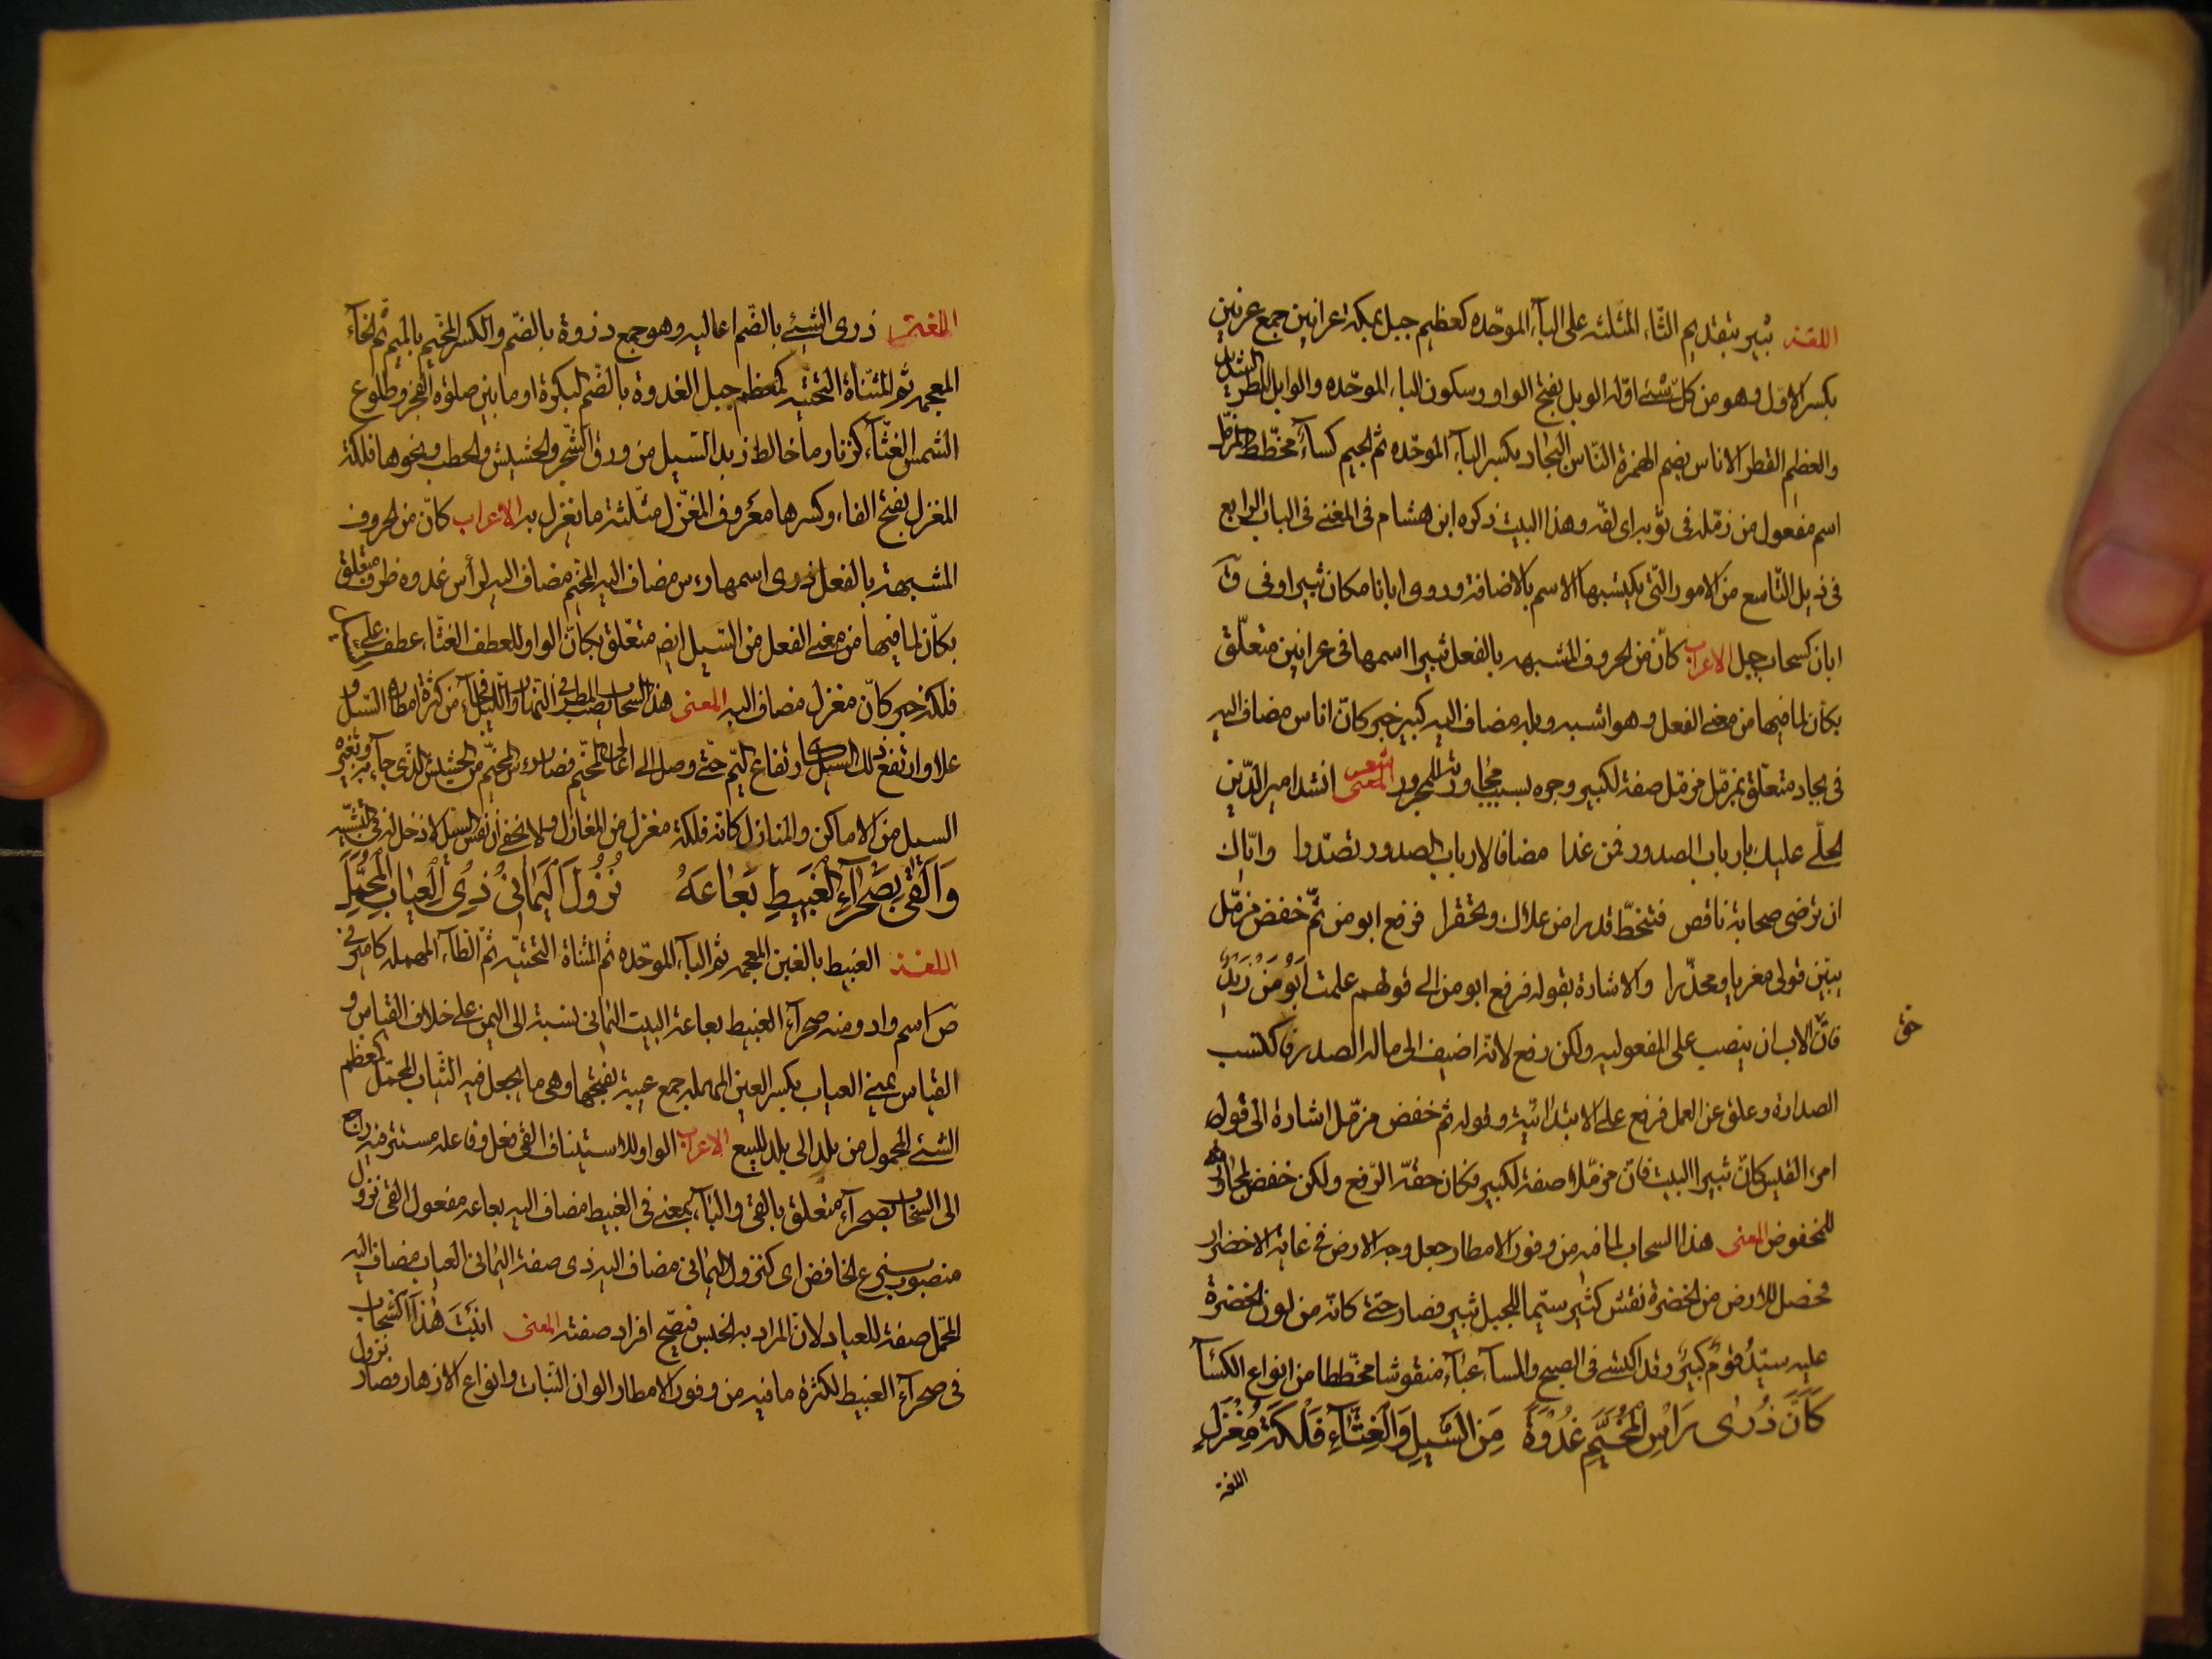 اللغة ثبير بتقديم الثاء المثلثه على البآء الموحّده كعظيم جبل بمكه عرانين جمع عرنين
بكسر الاوّل وهو من كلّ شئ اوّله الوبل بفتح الواو وسكون الباء الموحّده والوابل المطر الشديد
والعظيم القطر الاناس بضم الهمزة النّاس البجاد بكسر البآء الموحّده ثم الجيم كسآء مخطّط المزمّل
اسم مفعول من زمّله فى ثوبه اى لفّه وهذا البيت ذكره ابن هشام فى المغنے فى الباب الرابع
فى ذيل التّاسع من الامور الّتى يكتسبها الاسم بالاضافة وروى ابانا مكان ثبيرا وفى ق
ابان كسحاب جبل الاعراب كأنّ من الحروف المشبهه بالفعل ثبيرا اسمها فى عرانين متعلّق
بكأن لما فيها من معنے الفعل وهو اشبه وبله مضاف اليه كبير خبر كانّ اناس مضاف اليه
فى بجاد متعلّق بمزمّل مزمّل صفة لكبير وجره بسبب مجاورته للمجرور المعنى شعر انشد امير الدّين
المحلّے عليك بارباب الصدور فمن غدا مضافا لارباب الصدور تصدّرا واياك
ان ترضى صحابة ناقص فتنحطّ قدرا من علاك وتحقرا فرفع ابو من ثمّ خفض مزمّل
يبيّن قولى مغريا ومحذّرا والاشارة بقوله فرفع ابو من الى قولهم علمت اَبُو مَنْ زَيْدٌ
حق
فانّ الاب ان ينصب على المفعوليه ولكن رفع لانّه اضيف الى ماله الصدر فاكتسب
الصدارة وعلق عن العمل فرفع على الابتدائية وقوله ثم خفض مزمّل اشارة الى قول
امرء القيس كانّ ثبيرا البيت فانّ مزمّلا صفة لكبير فكان حقّه الرّفع ولكن خفض لمجاورته
للمخفوض المعنى هذا السحاب لما فيه من وفور الامطار جعل وجه الارض فى غاية الاخضرار
فحصل للارض من الخضرة نقش كثير سيّما للجبل ثبير فصار حتى كانّه من لون الخضرة
عليه سيّدُ قومٍ كبيرٌ وقد اكتسى فى الصبح والمسآء عبآء منقوشا مخطّطا من انواع الكسآء
كَاَنَّ ذُرٰى رَاْسِ الْمُخَيَّمِ غُدْوَةً مِنَ السَّيْلِ وَالْغِثَّآءِ فَلْكَةُ مِغْزَلِ
اللغة
اللغة ذرى الشئ بالضّم اعاليه وهو جمع ذروة بالضّم والكسر المخيّم بالميم ثم الخآء
المعجمه ثم المثنّاة التحتيه كمعظم جبل الغدوة بالضّم البكرة او ما بين صلوة الفجر وطلوع
الشمس الغثّآء كزنّار ما خالط زبد السّيل من ورق الشّجر والحشيش والحطب ونحوها فلكة
المغزل بفتح الفاء وكسرها معروف المغزل مثلثة ما يغزل به الاعراب كانّ من الحروف
المشبهة بالفعل ذرى اسمها رءس مضاف اليه المخيّم مضاف اليه لرأس غدوه ظرف متعلق
بكانّ لما فيها من معنے الفعل من السّيل ايضا متعلّق بكأنّ الواو للعطف الغثّاء عطف على السيل
فلكة خبر كانّ مغزل مضاف اليه المعنى هذا السّحاب يصبّ المطر فى النّهار والليل من كثرة امطاره السّيل
علا وارتفع ذلك السيل كارتفاع اليّم حتّى وصل الى اعالى المخيّم فصار رءس المخيّم من الحشيش الّذى جآء به وبغيره
السيل من الاماكن والمنازل كانّه فلكة مغزل من المغازل ولا يخفى انّ نفس السيل لا دخل له فى التشبيه
وَاَلْقٰى بِصَحْرَآءِ الْغَبِيطِ بَعَاعَهُ نُزُولَ الْيَمٰانِىْ ذِى الْعِيَابِ الْمُحَمَّلِ
اللغة الغبيط بالغين المعجمه ثم البآء الموحّده ثم المثناة التحتيّه ثمّ الطآء المهمله كامير فى
ص اسم واد ومنه صحرآء الغبيط بعاعة البيت اليمانى نسبة الى اليمن على خلاف القياس و
القياس يمنے العياب بكسر العين المهمله جمع عيبة بفتحها وهى ما يجعل فيه الثّياب المحمّل كمعظم
الشئ المحمول من بلد الى بلد للبيع الاعراب الواو للاستيناف القى فعل وفاعله مستتر فيه راجع
الى السّحاب بصحرآء متعلق بالقى والبآء بمعنے فى الغبيط مضاف اليه بعاعه مفعول القى نزول
منصوب بنزع الخافض اى كنزول اليمانى مضاف اليه ذى صفة اليمانى العياب مضاف اليه
المحمّل صفة للعياب لانّ المراد به الجنس فيصّح افراد صفته المعنى انبَتَ هٰذَا السّحَاب
فى صحرآء الغبيط لكثرة ما فيه من وفور الامطار الوان النّبات وانواع الازهار فصار نزول